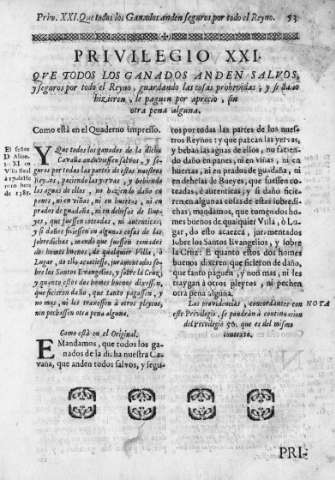 Priv. XXI. Que todos los Ganados anden seguros por todo el Reyno. 53
PRIVILEGIO XXI.
QVE TODOS LOS GANADOS ANDEN SALVOS,
y seguros por todo el Reyno, guardando las cosas prohividas; y si daño
hizieren, le paguen por aprecio, sin
otra pena alguna.
Como està en el Quaderno impresso.
El señor
D. Alon.
XI en
Villa Real
de
Y Que todos los ganados de la dicha
Cavaña anden salvos, y se-
guros por todas las partes de estos nuestros
Reynos, paciendo las yervas, y beviendo
las aguas de ellos, no haziendo daño en
panes, ni en viñas, ni en huertas, ni en
prados de guadaña, ni en dehesas de
que sean coteadas, ni autenticas;
y si daño fiziessen en algunas cosas de las
sobredichas, mando que sea tomados
dos homes buenos, de qualquier Villa, ò
Lugar, do esto acaeciesse, juramentados so-
bre los Santos Evangelios, y sobre la Cruz;
y quanto estos dos homes buenos dixeren,
que ficieron daño, que tanto paguen, y
no mas, ni les trayan à otros pleytos,
nin pechen otra pena alguna.
Como està en el Original.
E Mandamos, que todos los ga-
nados de la dicha nuestra Ca-
vaña, que anden todos salvos, y segu-
ros por todas las partes de los nues-
tros Reynos: y que pazcan las yervas,
y bebas las aguas de ellos, non facien-
do daño en panes, ni en viñas, ni en
huertas, ni en prados de guadaña, ni
en dehesas de Bueyes, que fuessen co-
teadas, è autenticas; y si daño ficie-
ren en algunas cosas de estas sobredi-
chas; mandamos, que tomgudos ho-
mes buenos de qualquier Villa, ò Lu-
gar, do esto acaezca, juramentados
sobre los Santos Evangelios, y sobre
la Cruz: E quanto estos dos homes
buenos dixeren que ficieron de daño,
que tanto paguen, y non mas, ni les
traygan à otros pleytos, ni pechen
otra pena alguna.
Las providencias, concordantes con
este Privilegio, se pondrán à continuacion
del Privilegio 50. que es del mismo
contexto.
NOTA
PRI-